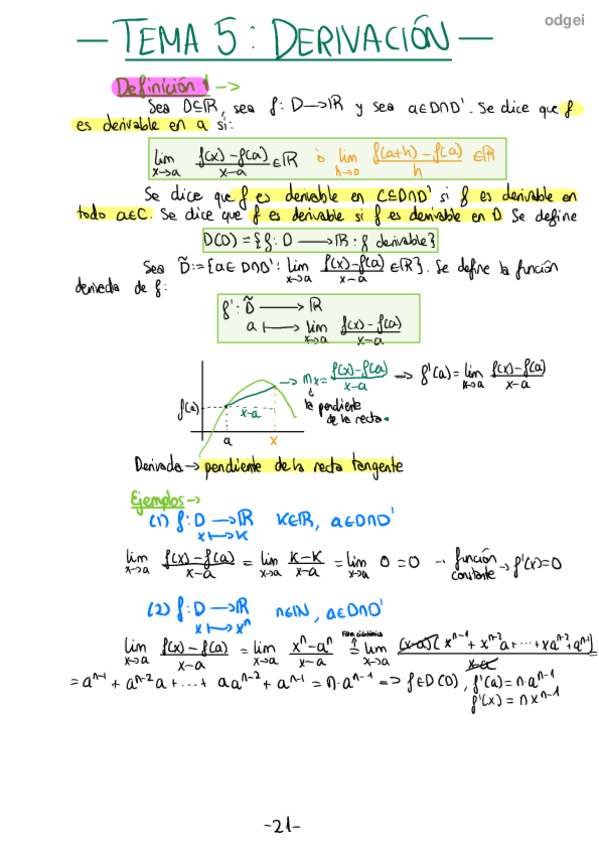 odgei
— TEMA 5: DERIVACIÓN —
Definición 1 ->
Sea D⊆ℝ, sea f: D→ℝ y sea a∈D∩D'. Se dice que f
es derivable en a si:
lim x→a (f(x)-f(a))/(x-a) ∈ℝ ò lim h→0 (f(a+h)-f(a))/h ∈ℝ
Se dice que f es derivable en C⊆D∩D' si f es derivable en
todo a∈C. Se dice que f es derivable si f es derivable en D Se define
D(D) = {f: D → ℝ : f derivable}
Sea D̃:={a∈ D∩D': lim x→a (f(x)-f(a))/(x-a) ∈ℝ}. Se define la función
derivada de f:
f': D̃ → ℝ
a ↦ lim x→a (f(x)-f(a))/(x-a)
-> mx = (f(x)-f(a))/(x-a) -> f'(a) = lim x→a (f(x)-f(a))/(x-a)
la pendiente
de la recta.
f(a)
x-a
a x
Derivada -> pendiente de la recta tangente
Ejemplos ->
(1) f: D → ℝ K∈ℝ, a∈D∩D'
x ↦ K
lim x→a (f(x)-f(a))/(x-a) = lim x→a (K-K)/(x-a) = lim x→a 0 = 0 -> función constante -> f'(x)=0
(2) f: D → ℝ n∈ℕ, a∈D∩D'
x ↦ xⁿ
lim x→a (f(x)-f(a))/(x-a) = lim x→a (xⁿ-aⁿ)/(x-a) = lim x→a ((x-a)(xⁿ⁻¹+xⁿ⁻²a+...+xaⁿ⁻²+aⁿ⁻¹))/(x-a)
= aⁿ⁻¹ + aⁿ⁻²a + ... + aaⁿ⁻² + aⁿ⁻¹ = n·aⁿ⁻¹ => f∈D(D), f'(a)=n·aⁿ⁻¹
f'(x) = nxⁿ⁻¹
-21-